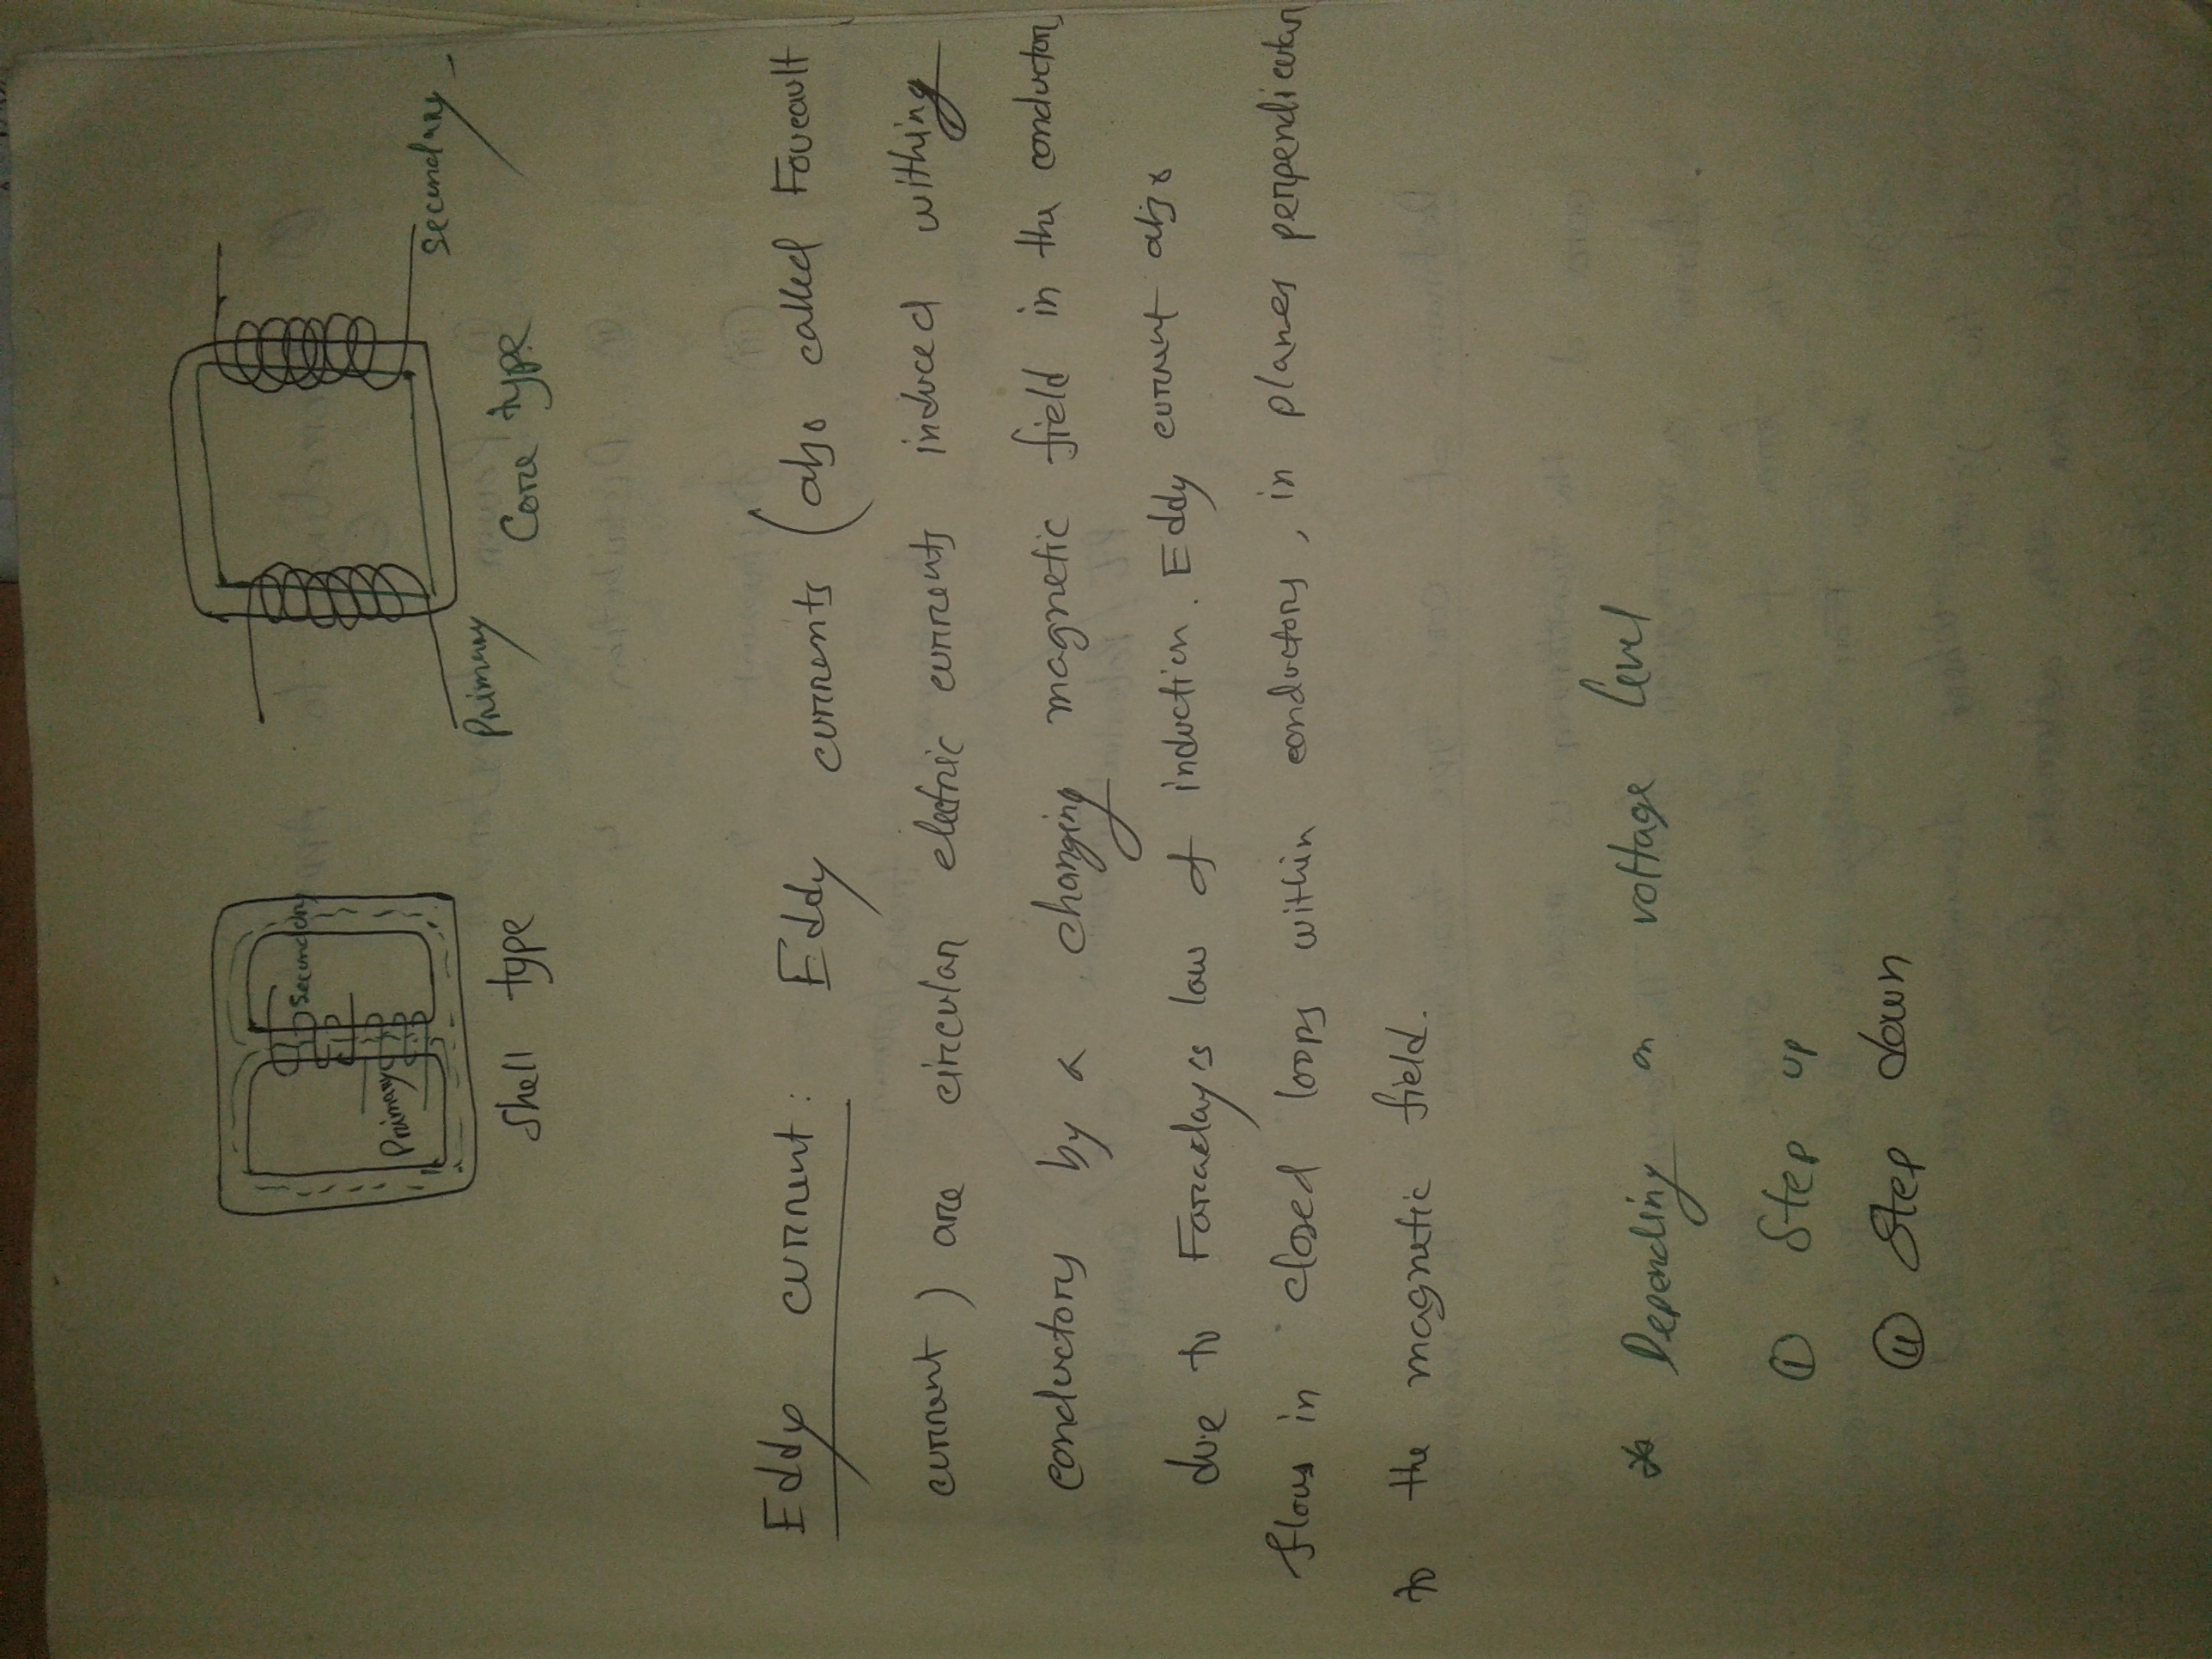 Secondary
Primary
Shell type
Primary
Secondary
Core type
Eddy current: Eddy currents (also called Foucault
current) are circular electric currents induced withing
conductors by a changing magnetic field in the conductor
due to Faraday's law of induction. Eddy current also
flows in closed loops within conductors, in planes perpendicular
to the magnetic field.
* Depending on voltage level
(i) Step up
(ii) Step down